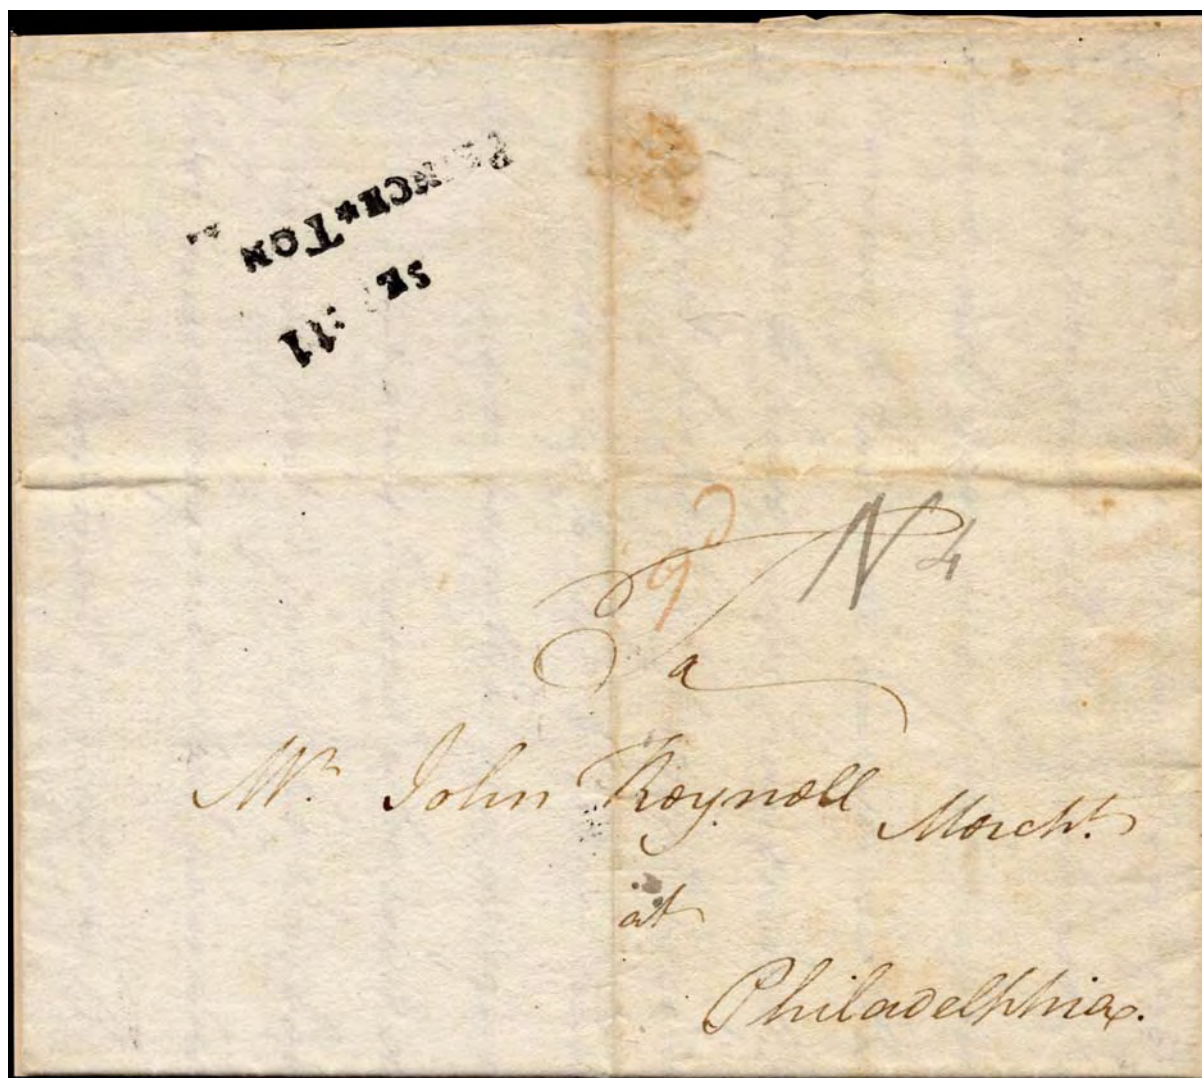 PRINCE*TON
SEP 11
N 4
Mr. John Reynell Mercht.
at
Philadelphia.